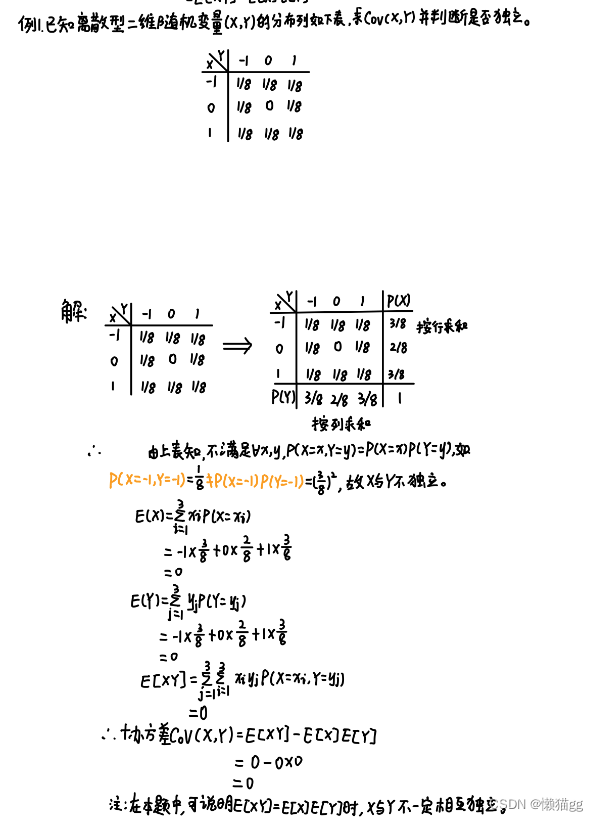 例1.已知离散型二维随机变量(X,Y)的分布列如下表,求Cov(X,Y)并判断是否独立。
X Y -1 0 1
-1 1/8 1/8 1/8
0 1/8 0 1/8
1 1/8 1/8 1/8
解:
X Y -1 0 1
-1 1/8 1/8 1/8
0 1/8 0 1/8
1 1/8 1/8 1/8
⟹
X Y -1 0 1 P(X)
-1 1/8 1/8 1/8 3/8 按行求和
0 1/8 0 1/8 2/8
1 1/8 1/8 1/8 3/8
P(Y) 3/8 2/8 3/8 1
按列求和
∴ 由上表知,不满足∀x,y,P(X=x,Y=y)=P(X=x)P(Y=y),如
P(X=-1,Y=-1)=1/8≠P(X=-1)P(Y=-1)=(3/8)²,故X与Y不独立。
E(X)=∑_{i=1}^{3} xiP(X=xi)
=-1×3/8+0×2/8+1×3/8
=0
E(Y)=∑_{j=1}^{3} yjP(Y=yj)
=-1×3/8+0×2/8+1×3/8
=0
E[XY]=∑_{j=1}^{3}∑_{i=1}^{3} xiyjP(X=xi,Y=yj)
=0
∴协方差CoV(X,Y)=E[XY]-E[X]E[Y]
=0-0×0
=0
注:在本题中,可说明E[XY]=E[X]E[Y]时,X与Y不一定相互独立。
CSDN @懒猫gg